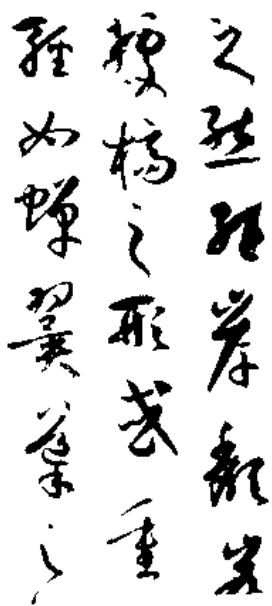 之態絕岸頹峯
據槁之形或重
輕如蟬翼導之